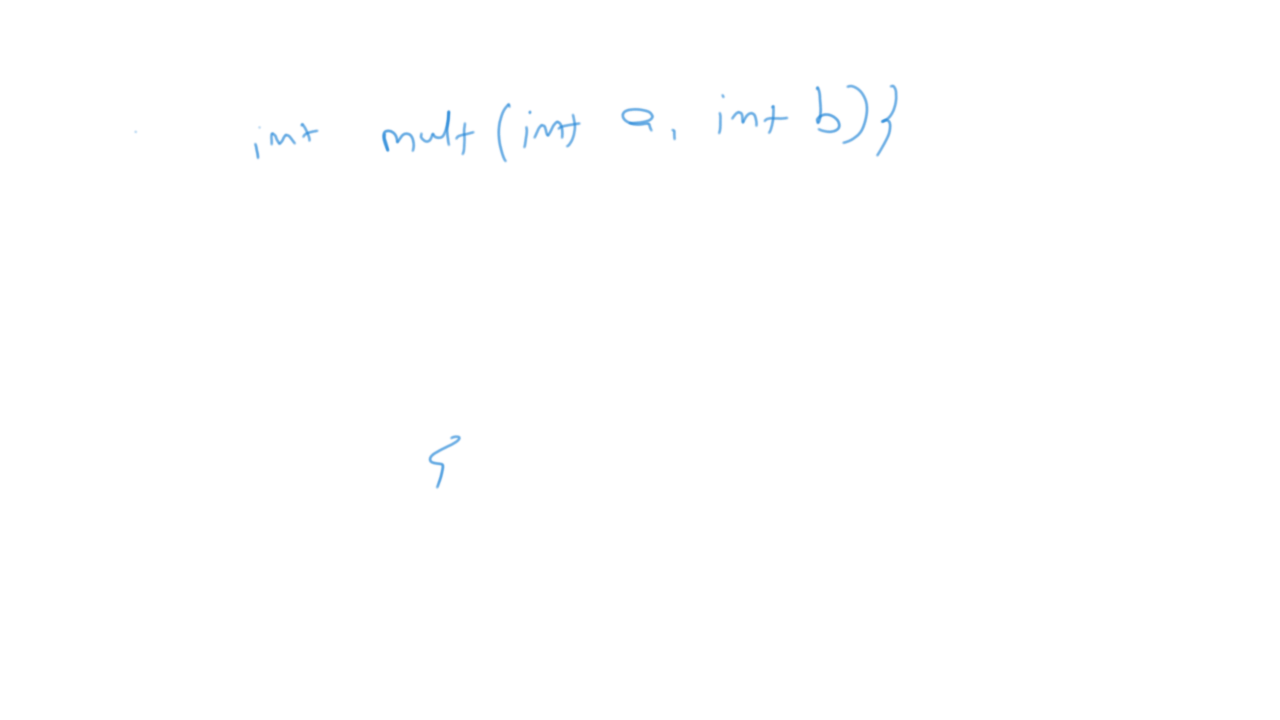 int mult(int a, int b)}
{